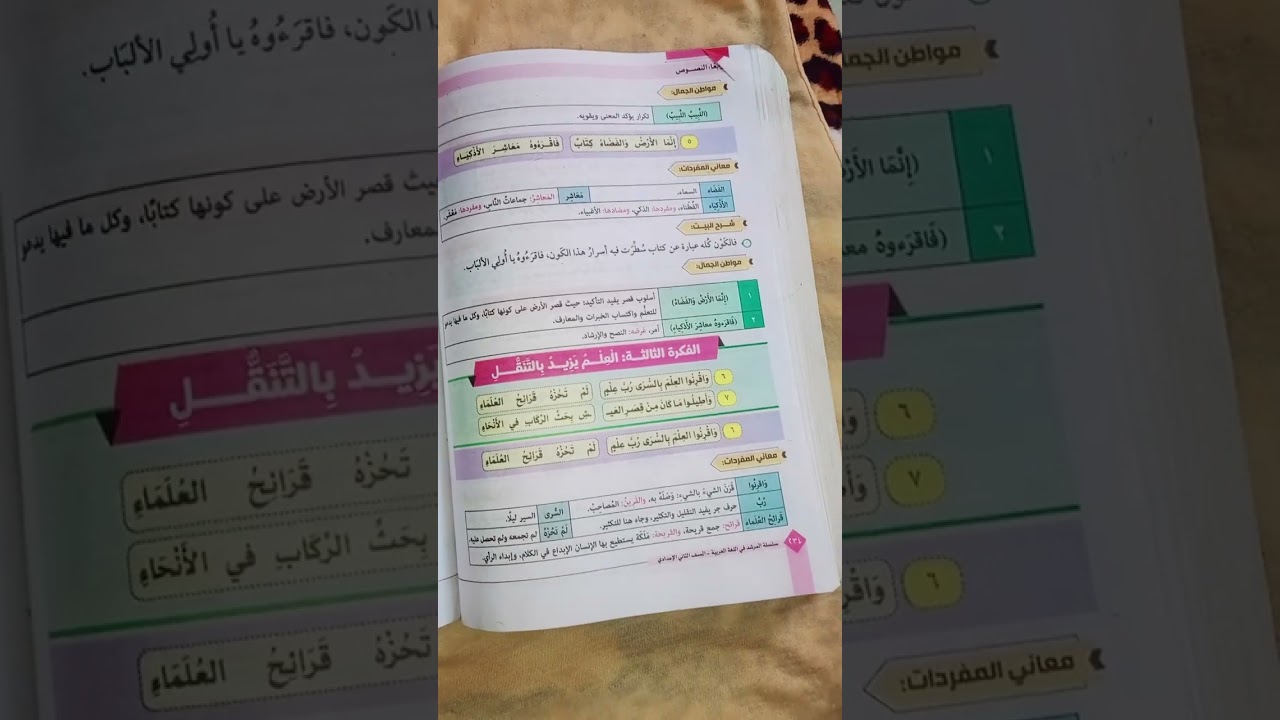 تابعا: النصوص
مواطن الجمال:
(اللَّبِيبُ اللَّبِيبُ) تكرار يؤكد المعنى ويقويه.
٥ إِنَّمَا الأَرْضُ وَالفَضَاءُ كِتَابٌ فَاقْرَءُوهُ مَعَاشِرَ الأَذْكِيَاءِ
معاني المفردات:
الفَضَاء السماء. مَعَاشِر المَعاشِرُ: جماعاتُ النَّاسِ، ومفردها: مَعْشَر.
الأَذْكِيَاء الفُطَناء، ومفردها: الذكي، ومضادها: الأغبياء.
شرح البيت:
فالكَوْن كُله عبارة عن كتاب سُطِّرَت فيه أسرارُ هذا الكَون، فاقرَءُوهُ يا أُولِي الألبَاب.
مواطن الجمال:
١ (إِنَّمَا الأَرْضُ وَالفَضَاءُ) أسلوب قصر يفيد التأكيد؛ حيث قصر الأرض على كونها كتابًا، وكل ما فيها يدعو
للتعلُّم واكتساب الخبرات والمعارف.
٢ (فَاقرَءوهُ معاشِرَ الأَذْكِيَاءِ) أمر، غرضه: النصح والإرشاد.
الفكرة الثالثة: الْعِلْمُ يَزِيدُ بِالتَّنَقُّلِ
٦ وَاقْرِنُوا العِلْمَ بِالسُّرَى رُبَّ عِلْمٍ لَمْ تَحُزْهُ قَرَائِحُ العُلَمَاءِ
٧ وَأَطِيلُوا مَا كَانَ مِنْ قِصَرِ العَيْـ ـشِ بِحَثِّ الرِّكَابِ فِي الأَنْحَاءِ
٦ وَاقْرِنُوا العِلْمَ بِالسُّرَى رُبَّ عِلْمٍ لَمْ تَحُزْهُ قَرَائِحُ العُلَمَاءِ
معاني المفردات:
وَاقرِنُوا قَرَنَ الشيءَ بالشيءِ: وَصَلَهُ به، والقَرِينُ: المُصاحِبُ. السُّرى السير ليلًا.
رُبَّ حرف جر يفيد التقليل والتكثير، وجاء هنا للتكثير. لَمْ تَحُزْهُ لم تجمعه ولم تحصل عليه.
قَرَائِحُ العُلَمَاء قَرائِح: جمع قريحة، والقريحة: مَلَكَة يستطيع بها الإنسان الإبداع في الكلام، وإبداء الرأي.
٢٣٤ سلسلة المرشد في اللغة العربية - الصف الثاني الإعدادي